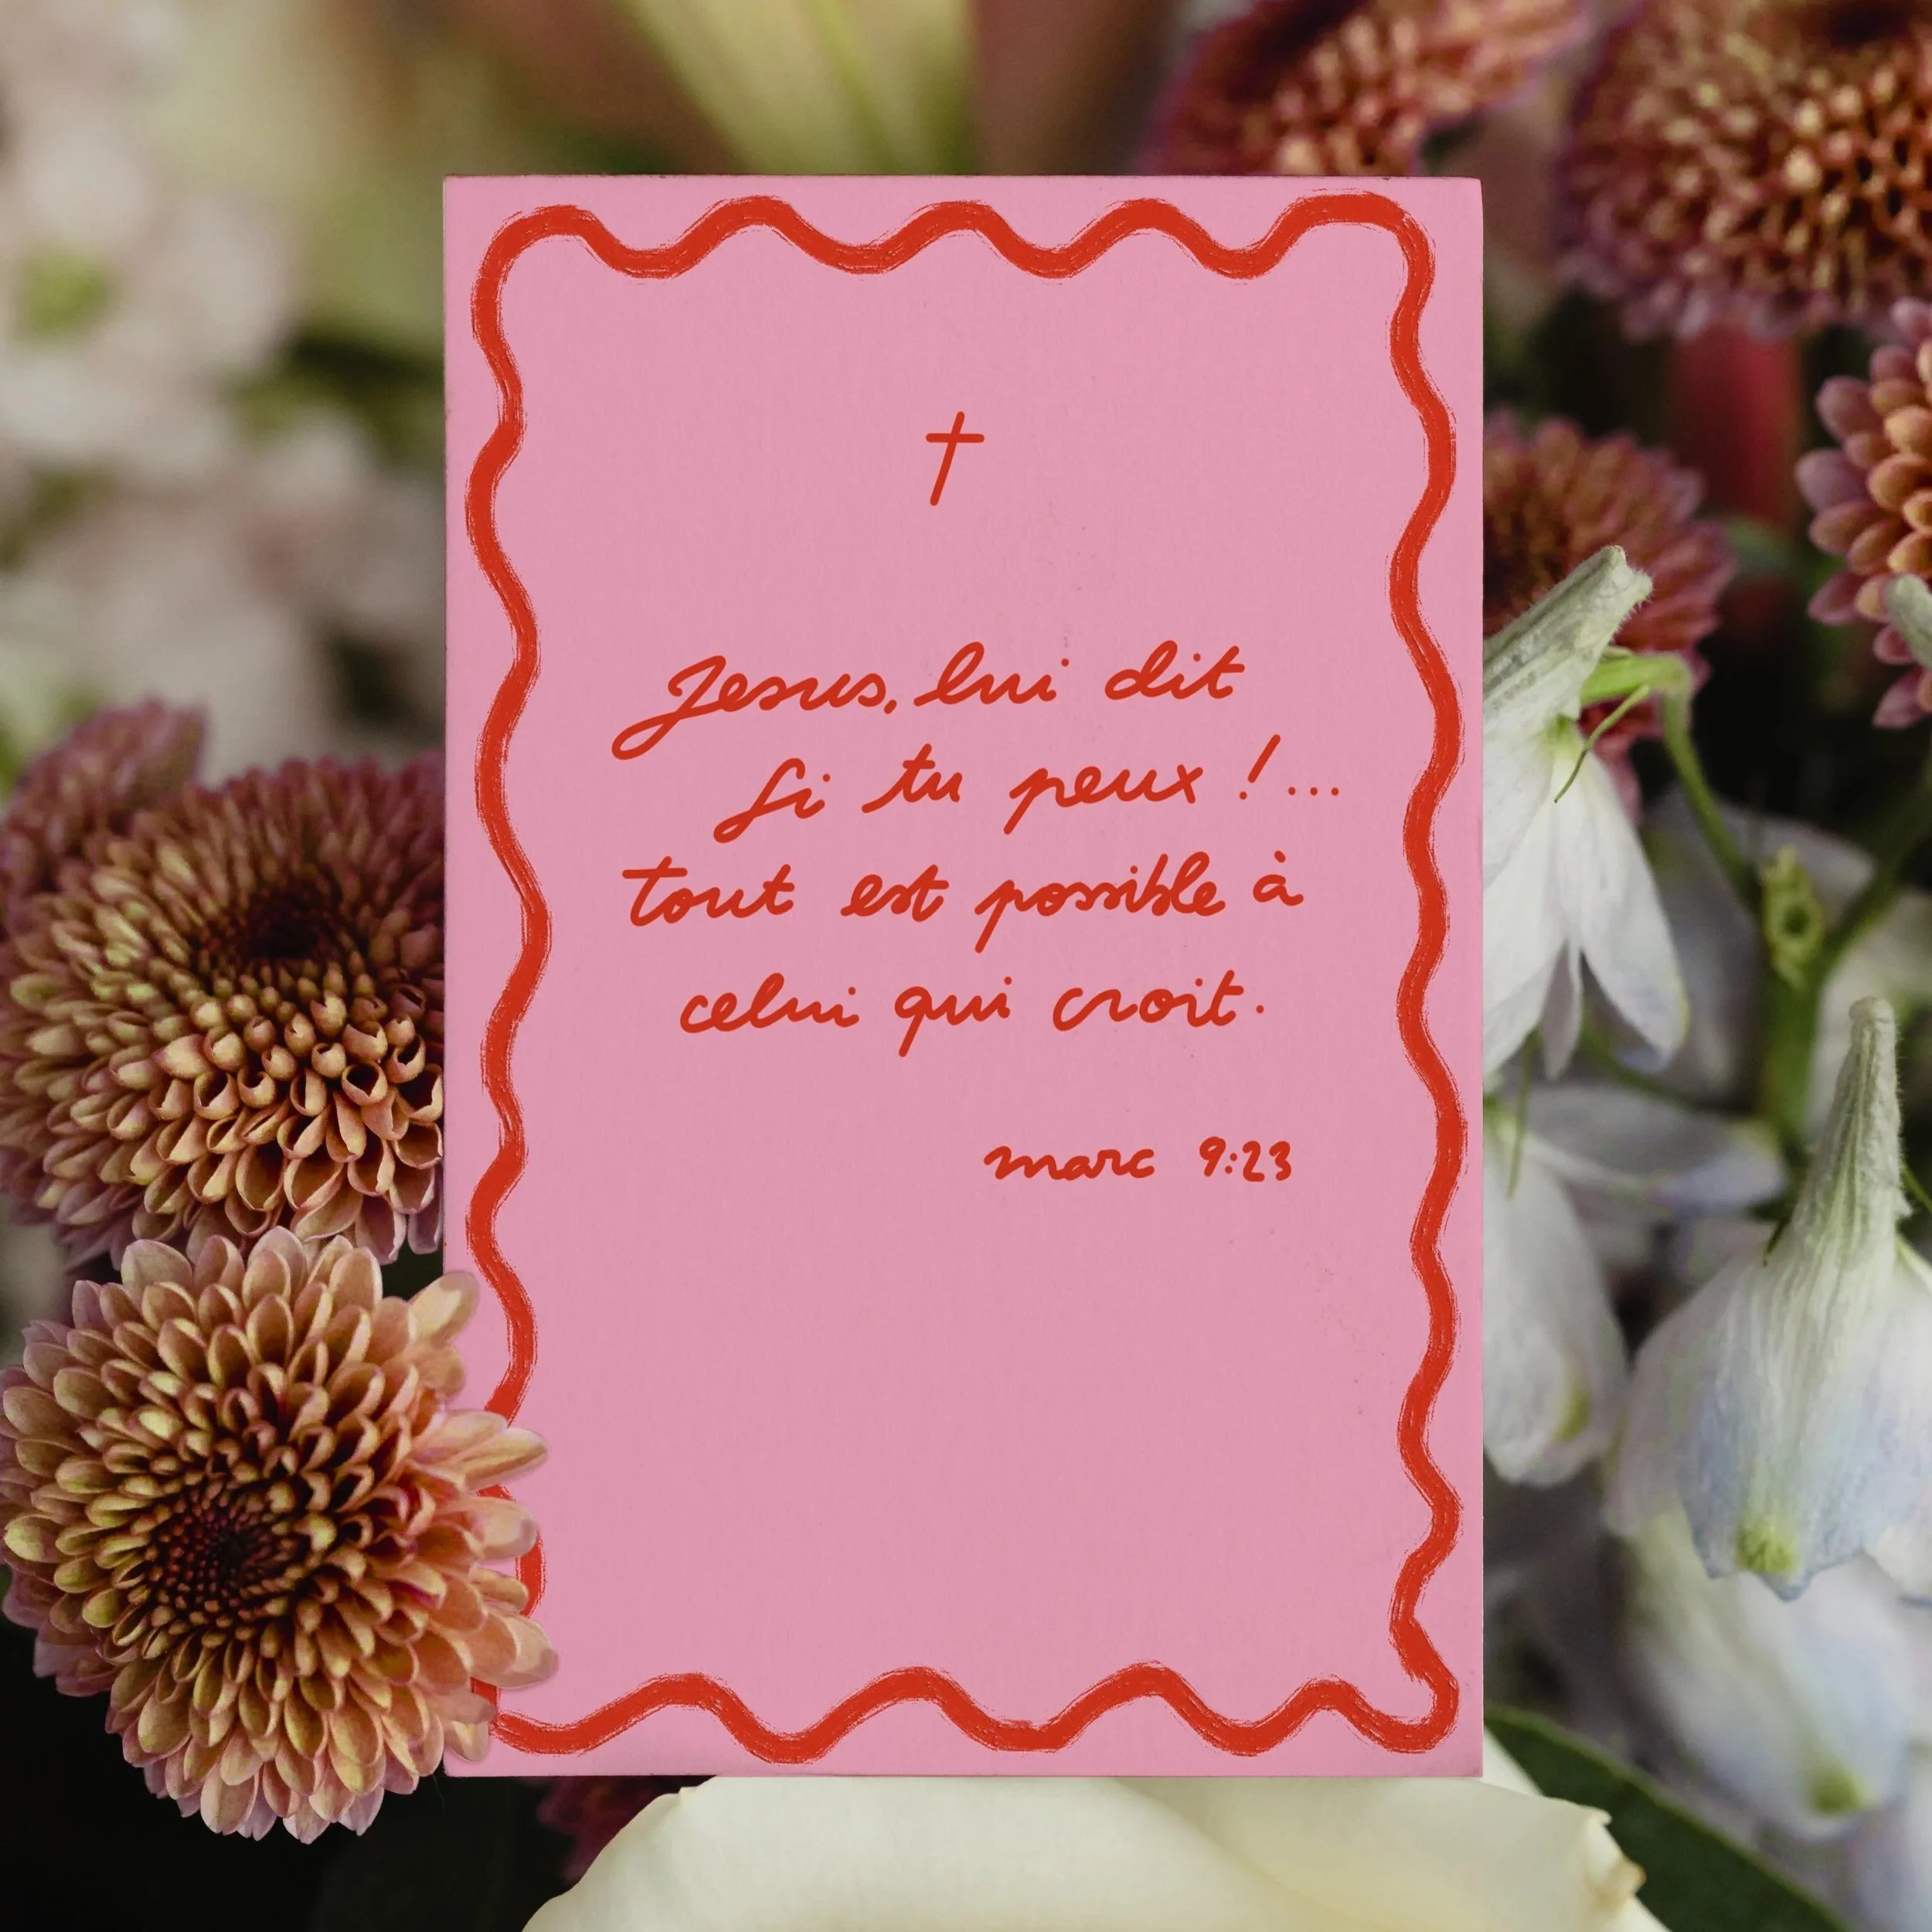 Jesus, lui dit
Si tu peux !...
tout est possible à
celui qui croit.
marc 9:23